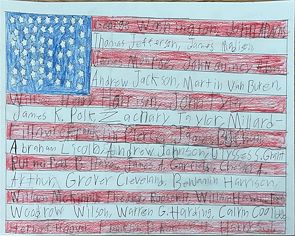 George Washington, John Adams
Thomas Jefferson, James Madison
James Monroe, John Quincy
Andrew Jackson, Martin Van Buren
William Henry Harrison, John Tyler
James K. Polk Zachary Taylor, Millard
Fillmore, Franklin Pierce, James
Abraham Lincoln, Andrew Johnson, Ulysses S. Grant
Rutherford B. Hayes, James A. Garfield, Chester
Arthur, Grover Cleveland, Benjamin Harrison,
William McKinley, Theodore Roosevelt, William Howard
Woodrow Wilson, Warren G. Harding, Calvin Coolidge